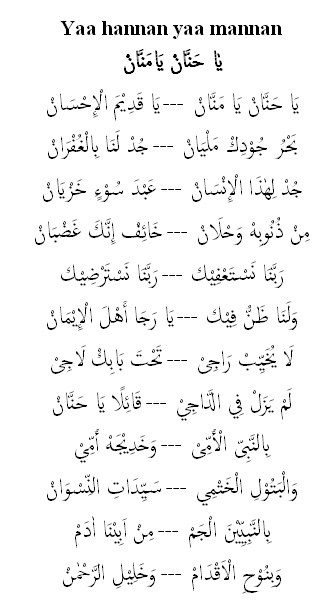 Yaa hannan yaa mannan
يٰا حَنَّانْ يَامَنَّانْ
يَا حَنَّانْ يَا مَنَّانْ --- يَا قَدِيْمَ الْإِحْسَانْ
بَحْرُ جُوْدِكْ مَلْيَانْ --- جُدْ لَنَا بِالْغُفْرَانْ
جُدْ لِهٰذَا الْإِنْسَانْ --- عَبْدَ سُوْءٍ خَزْيَانْ
مِنْ ذُنُوبِهْ وَحْلَانْ --- خَائِفْ إِنَّكَ غَضْبَانْ
رَبَّنَا نَسْتَعْفِيْك --- رَبَّنَا نَسْتَرْضِيْك
وَلَنَا ظَنٌّ فِيْك --- يَا رَجَا أَهْلَ الْإِيْمَانْ
لَا يُخَيِّبْ رَاجِىْ --- تَحْتَ بَابِكْ لَاجِىْ
لَمْ يَزَلْ فِي الدَّاجِيْ --- قَائِلًا يَا حَنَّانْ
بِالنَّبِىِّ الْأُمِّىْ --- وَخَدِيْجَهْ أُمِّيْ
وَالْبَتُوْلِ الْخَتْمِي --- سَيِّدَاتِ النِّسْوَانْ
بِالنَّبِيِّيْنَ الْجَمْ --- مِنْ اَبِيْنَا اٰدَمْ
وَبِنُوْحِ الْاَقْدَامْ --- وَخَلِيْلِ الرَّحْمٰنْ